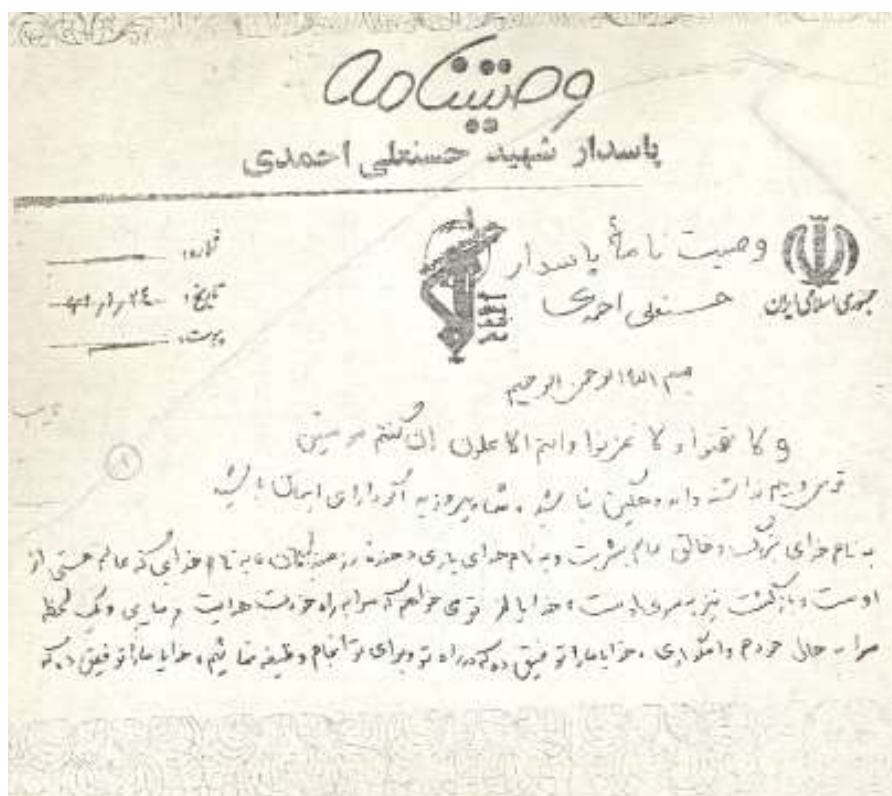 وصیتنامه
پاسدار شهید حسنعلی احمدی
وصیت نامهٔ پاسدار
حسنعلی احمدی
جمهوری اسلامی ایران
شماره:
تاریخ:
پیوست:
بسم الله الرحمن الرحیم
و لا تهنوا و لا تحزنوا وانتم الاعلون ان کنتم مومنین
۱
ترس و بیم نداشته و اندوهگین نباشید، شما پیروزید اگر دارای ایمان باشید
به نام خدای بزرگ و خالق عالم بشریت و به نام خدای یاری دهنده رزمندگان، به نام خدایی که عالم هستی از
اوست و بازگشت نیز به سوی اوست، خدایا از تو می خواهم که مرا به راه خودت هدایت فرمایی و یک لحظه
مرا به حال خودم وامگذاری، خدایا مارا توفیق ده که در راه تو و برای تو انجام وظیفه نمائیم، خدایا مارا توفیق ده که